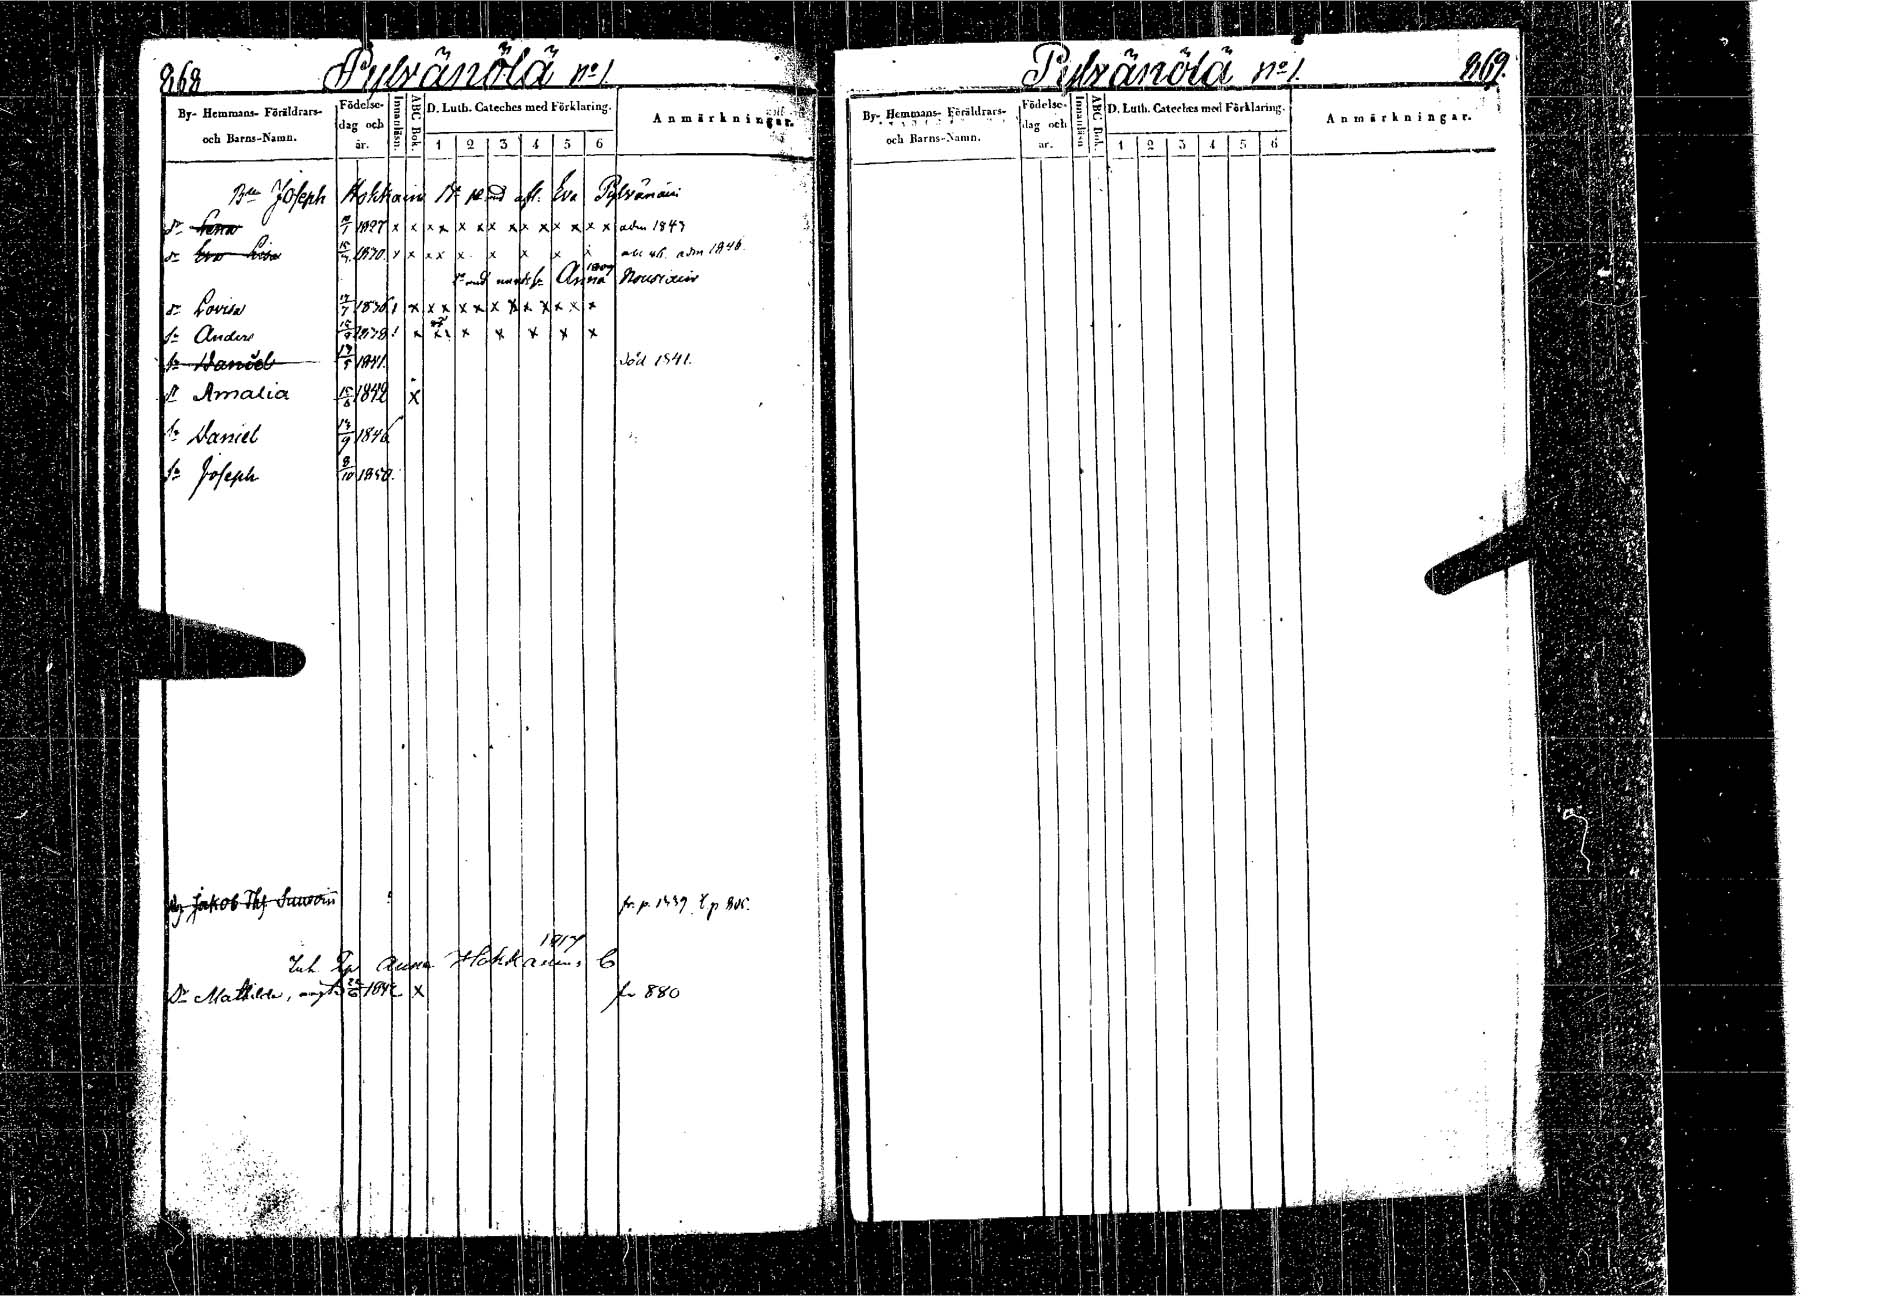 868 Pylvänölä no 1.
By- Hemmans- Föräldrars- och Barns-Namn.
Födelse- dag och år.
Innanläsn.
ABC Bok.
D. Luth. Cateches med Förklaring.
1 2 3 4 5 6
Anmärkningar.
Joseph Hokkain afl. Eva Pylvänäin
Dr Lena 1827 x x x x x x x x x x x x x x adm 1843
Dr Eva Lisa 1830 x x x x x x x x x adm 1846
1809
Anna Nousiain
Dr Lovisa 17/7 1836 x x x x x x x x x x x x
Sn Anders 1838 x x x x x x x
Sn Daniel 1841. död 1841.
Dr Amalia 15/6 1842 x
Sn Daniel 13/9 1846
Sn Joseph 8/10 1850.
Jakob
fr. p. 1439
1817
Inh. Hokkanens
Dr Mathilda, 1842 x fr 880
Pylvänölä no 1. 869.
By- Hemmans- Föräldrars- och Barns-Namn.
Födelse- dag och år.
Innanläsn
ABC Bok.
D. Luth. Cateches med Förklaring.
1 2 3 4 5 6
Anmärkningar.